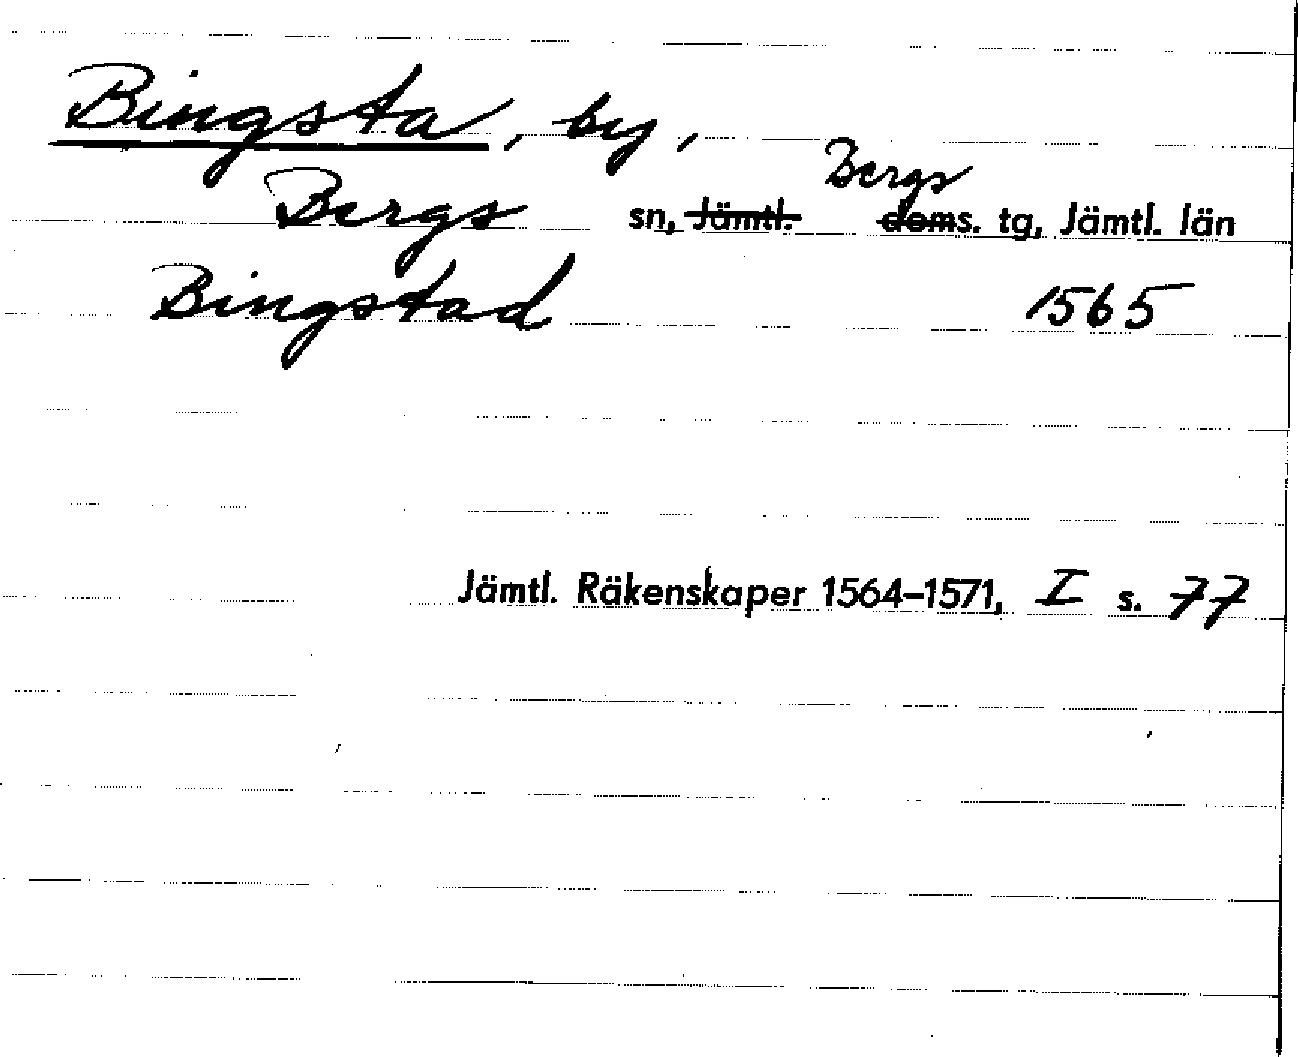 Bingsta, by,
Bergs
Bergs sn, Jämtl. doms. tg, Jämtl. län
Bingstad 1565
Jämtl. Räkenskaper 1564–1571, I s. 77